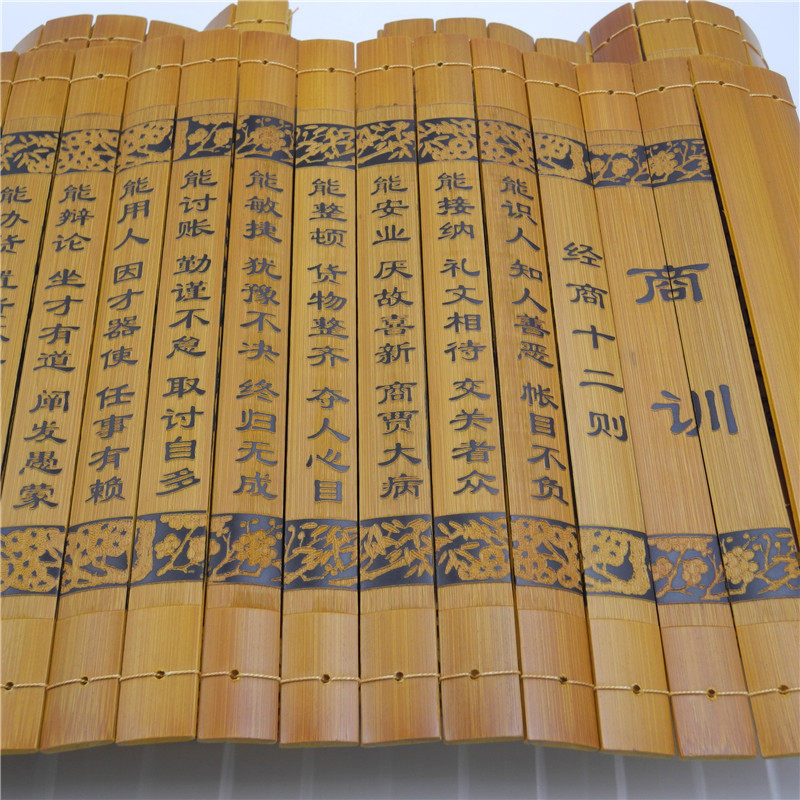 商训
经商十二则
能识人 知人善恶 帐目不负
能接纳 礼文相待 交关者众
能安业 厌故喜新 商贾大病
能整顿 货物整齐 夺人心目
能敏捷 犹豫不决 终归无成
能讨账 勤谨不怠 取讨自多
能用人 因才器使 任事有赖
能辩论 坐才有道 阐发愚蒙
能办货